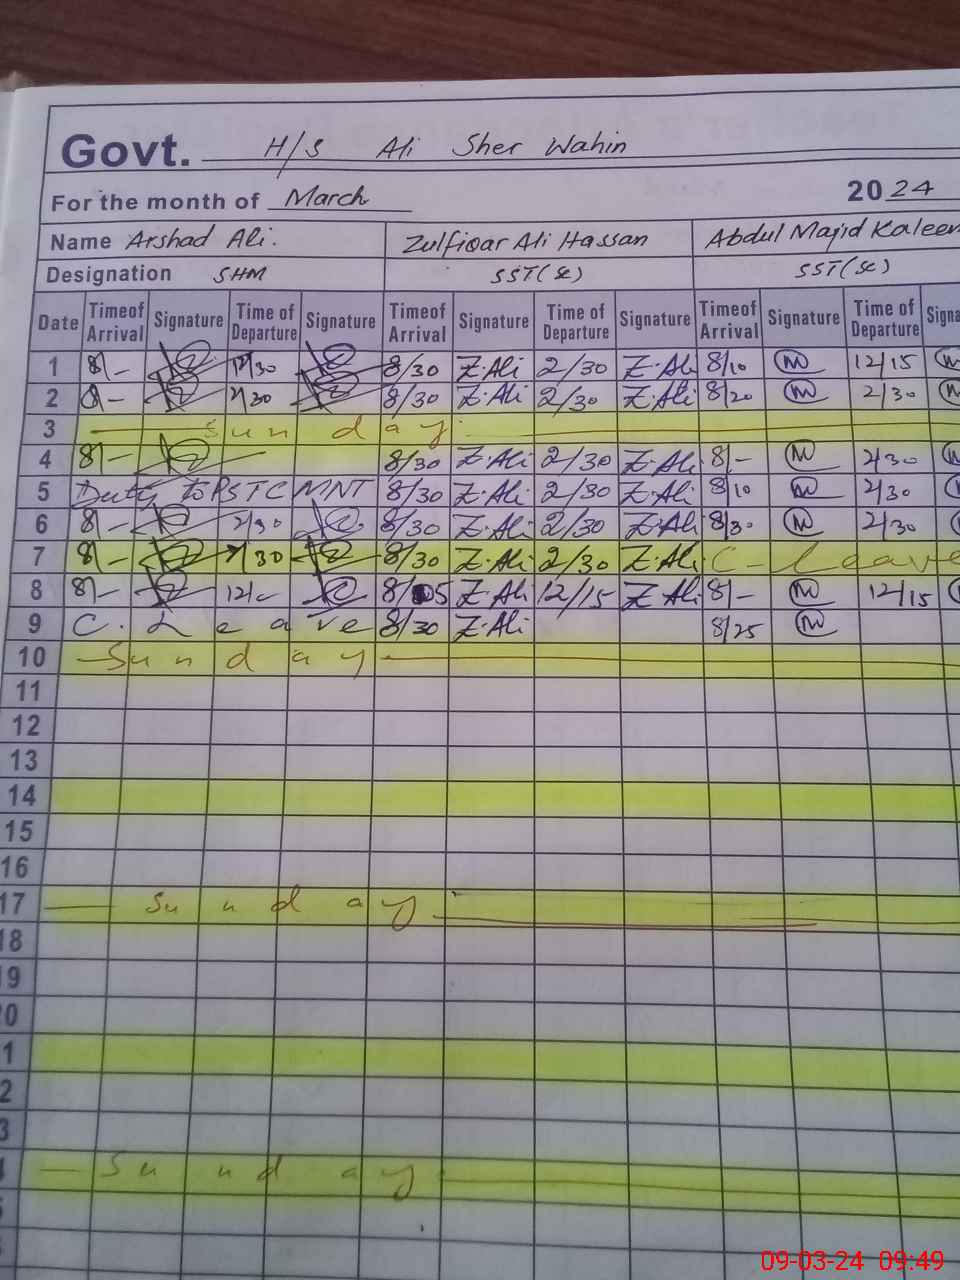 Govt. H/S Ali Sher Wahin
For the month of March 2024
Name Arshad Ali. Zulfiqar Ali Hassan Abdul Majid Kaleem
Designation SHM SST(Sc) SST(Sc)
Date Timeof Arrival Signature Time of Departure Signature Timeof Arrival Signature Time of Departure Signature Timeof Arrival Signature Time of Departure Signa
1 8/- 12/30 8/30 Z.Ali 2/30 Z.Ali 8/10 12/15
2 8/- 2/30 8/30 Z.Ali 2/30 Z.Ali 8/20 2/30
3 Sunday
4 8/- 8/30 Z.Ali 2/30 Z.Ali 8/- 2/30
5 Duty to PSTC MNT 8/30 Z.Ali 2/30 Z.Ali 8/10 2/30
6 8/- 2/30 8/30 Z.Ali 2/30 Z.Ali 8/30 2/30
7 8/- 30 8/30 Z.Ali 2/30 Z.Ali C-Leave
8 8/- 12/ 8/05 Z.Ali 12/15 Z.Ali 8/- 12/15
9 C. Leave 8/30 Z.Ali 8/25
10 Sunday
11
12
13
14
15
16
17 Sunday
18
19
0
1
2
3
4 Sunday
5
09-03-24 09:49